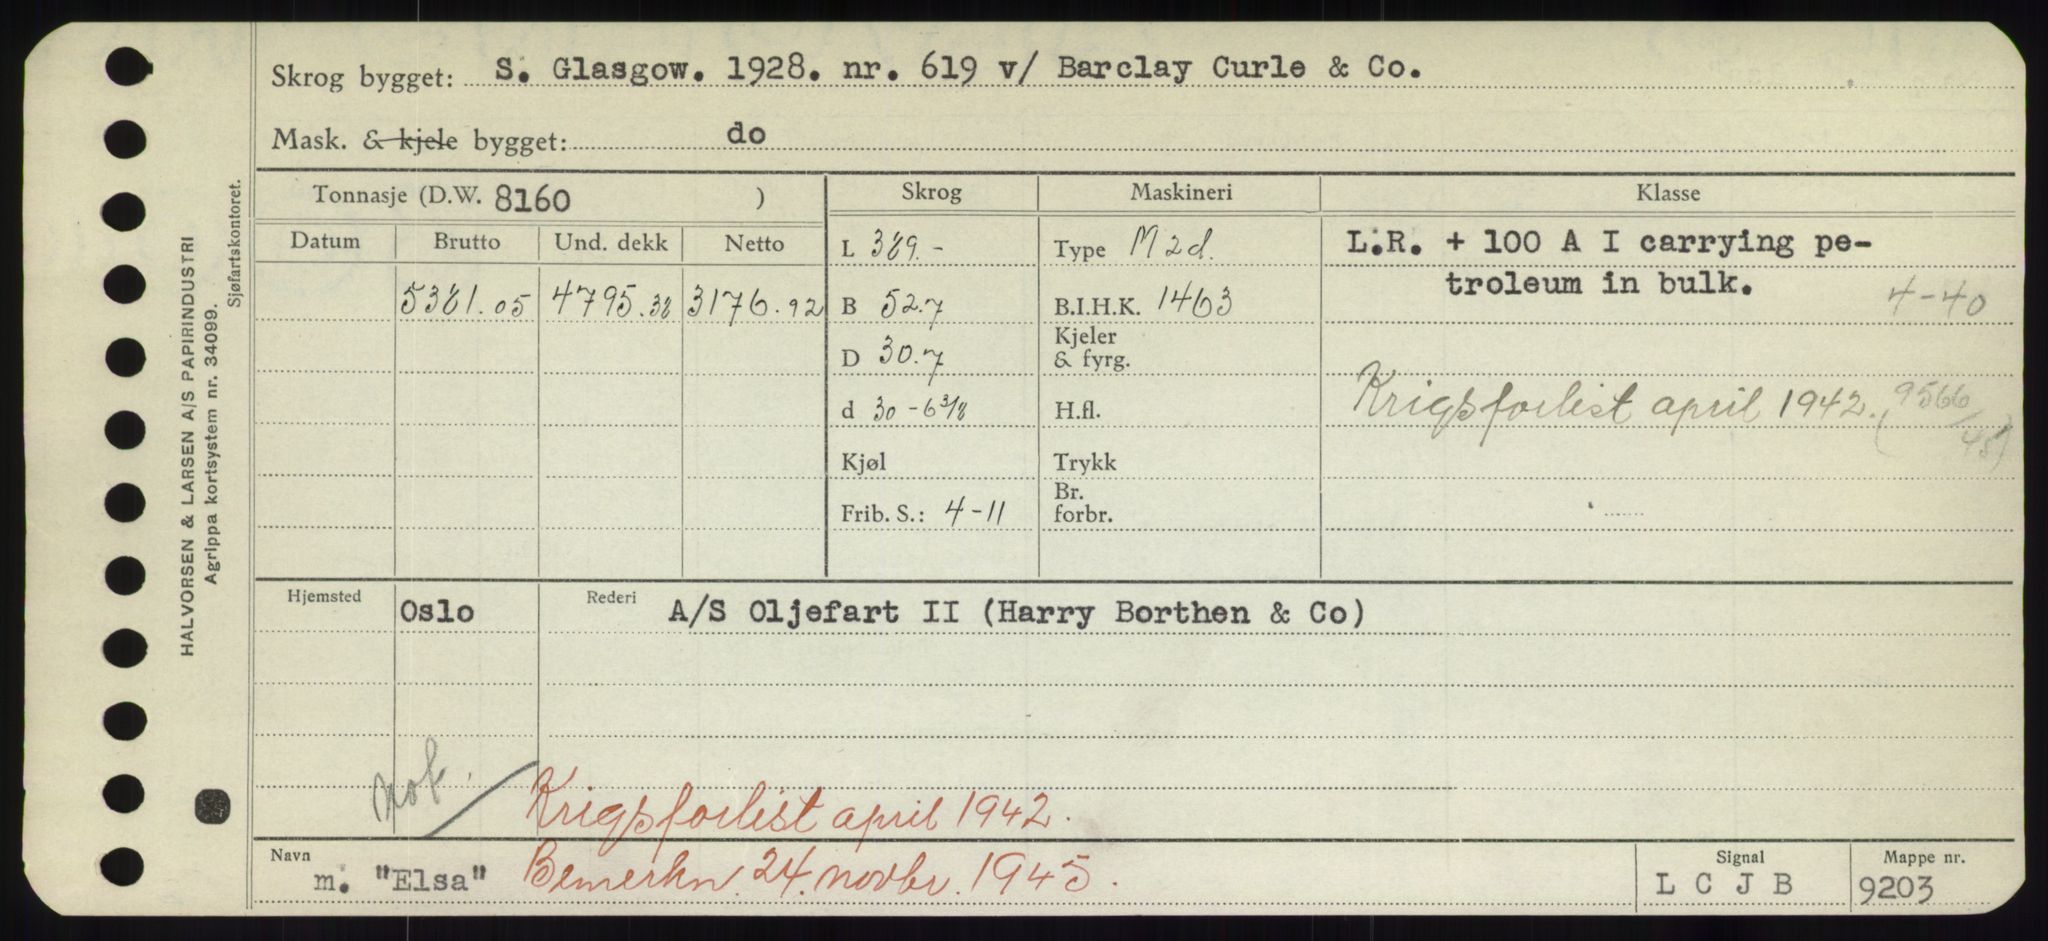 Skrog bygget: S. Glasgow. 1928. nr. 619 v/ Barclay Curle & Co.
Mask. & kjele bygget: do
Tonnasje (D.W. 8160 )
Skrog
Maskineri
Klasse
Datum
Brutto
Und. dekk
Netto
5381.05
4795.38
3176.92
L 389.-
B 52.7
D 30.7
d 30-6 3/8
Kjøl
Frib. S.: 4-11
Type M 2 d.
B.I.H.K. 1463
Kjeler
& fyrg.
H.fl.
Trykk
Br.
forbr.
L.R. + 100 A I carrying pe-
troleum in bulk.
4-40
Krigsforlist april 1942. (9566/45)
Hjemsted
Oslo
Rederi
A/S Oljefart II (Harry Borthen & Co)
Krigsforlist april 1942.
Navn
m. "Elsa" Bemerkn. 24. novbr. 1945.
Signal
L C J B
Mappe nr.
9203
HALVORSEN & LARSEN A/S PAPIRINDUSTRI
Agrippa kortsystem nr. 34099.
Sjøfartskontoret.